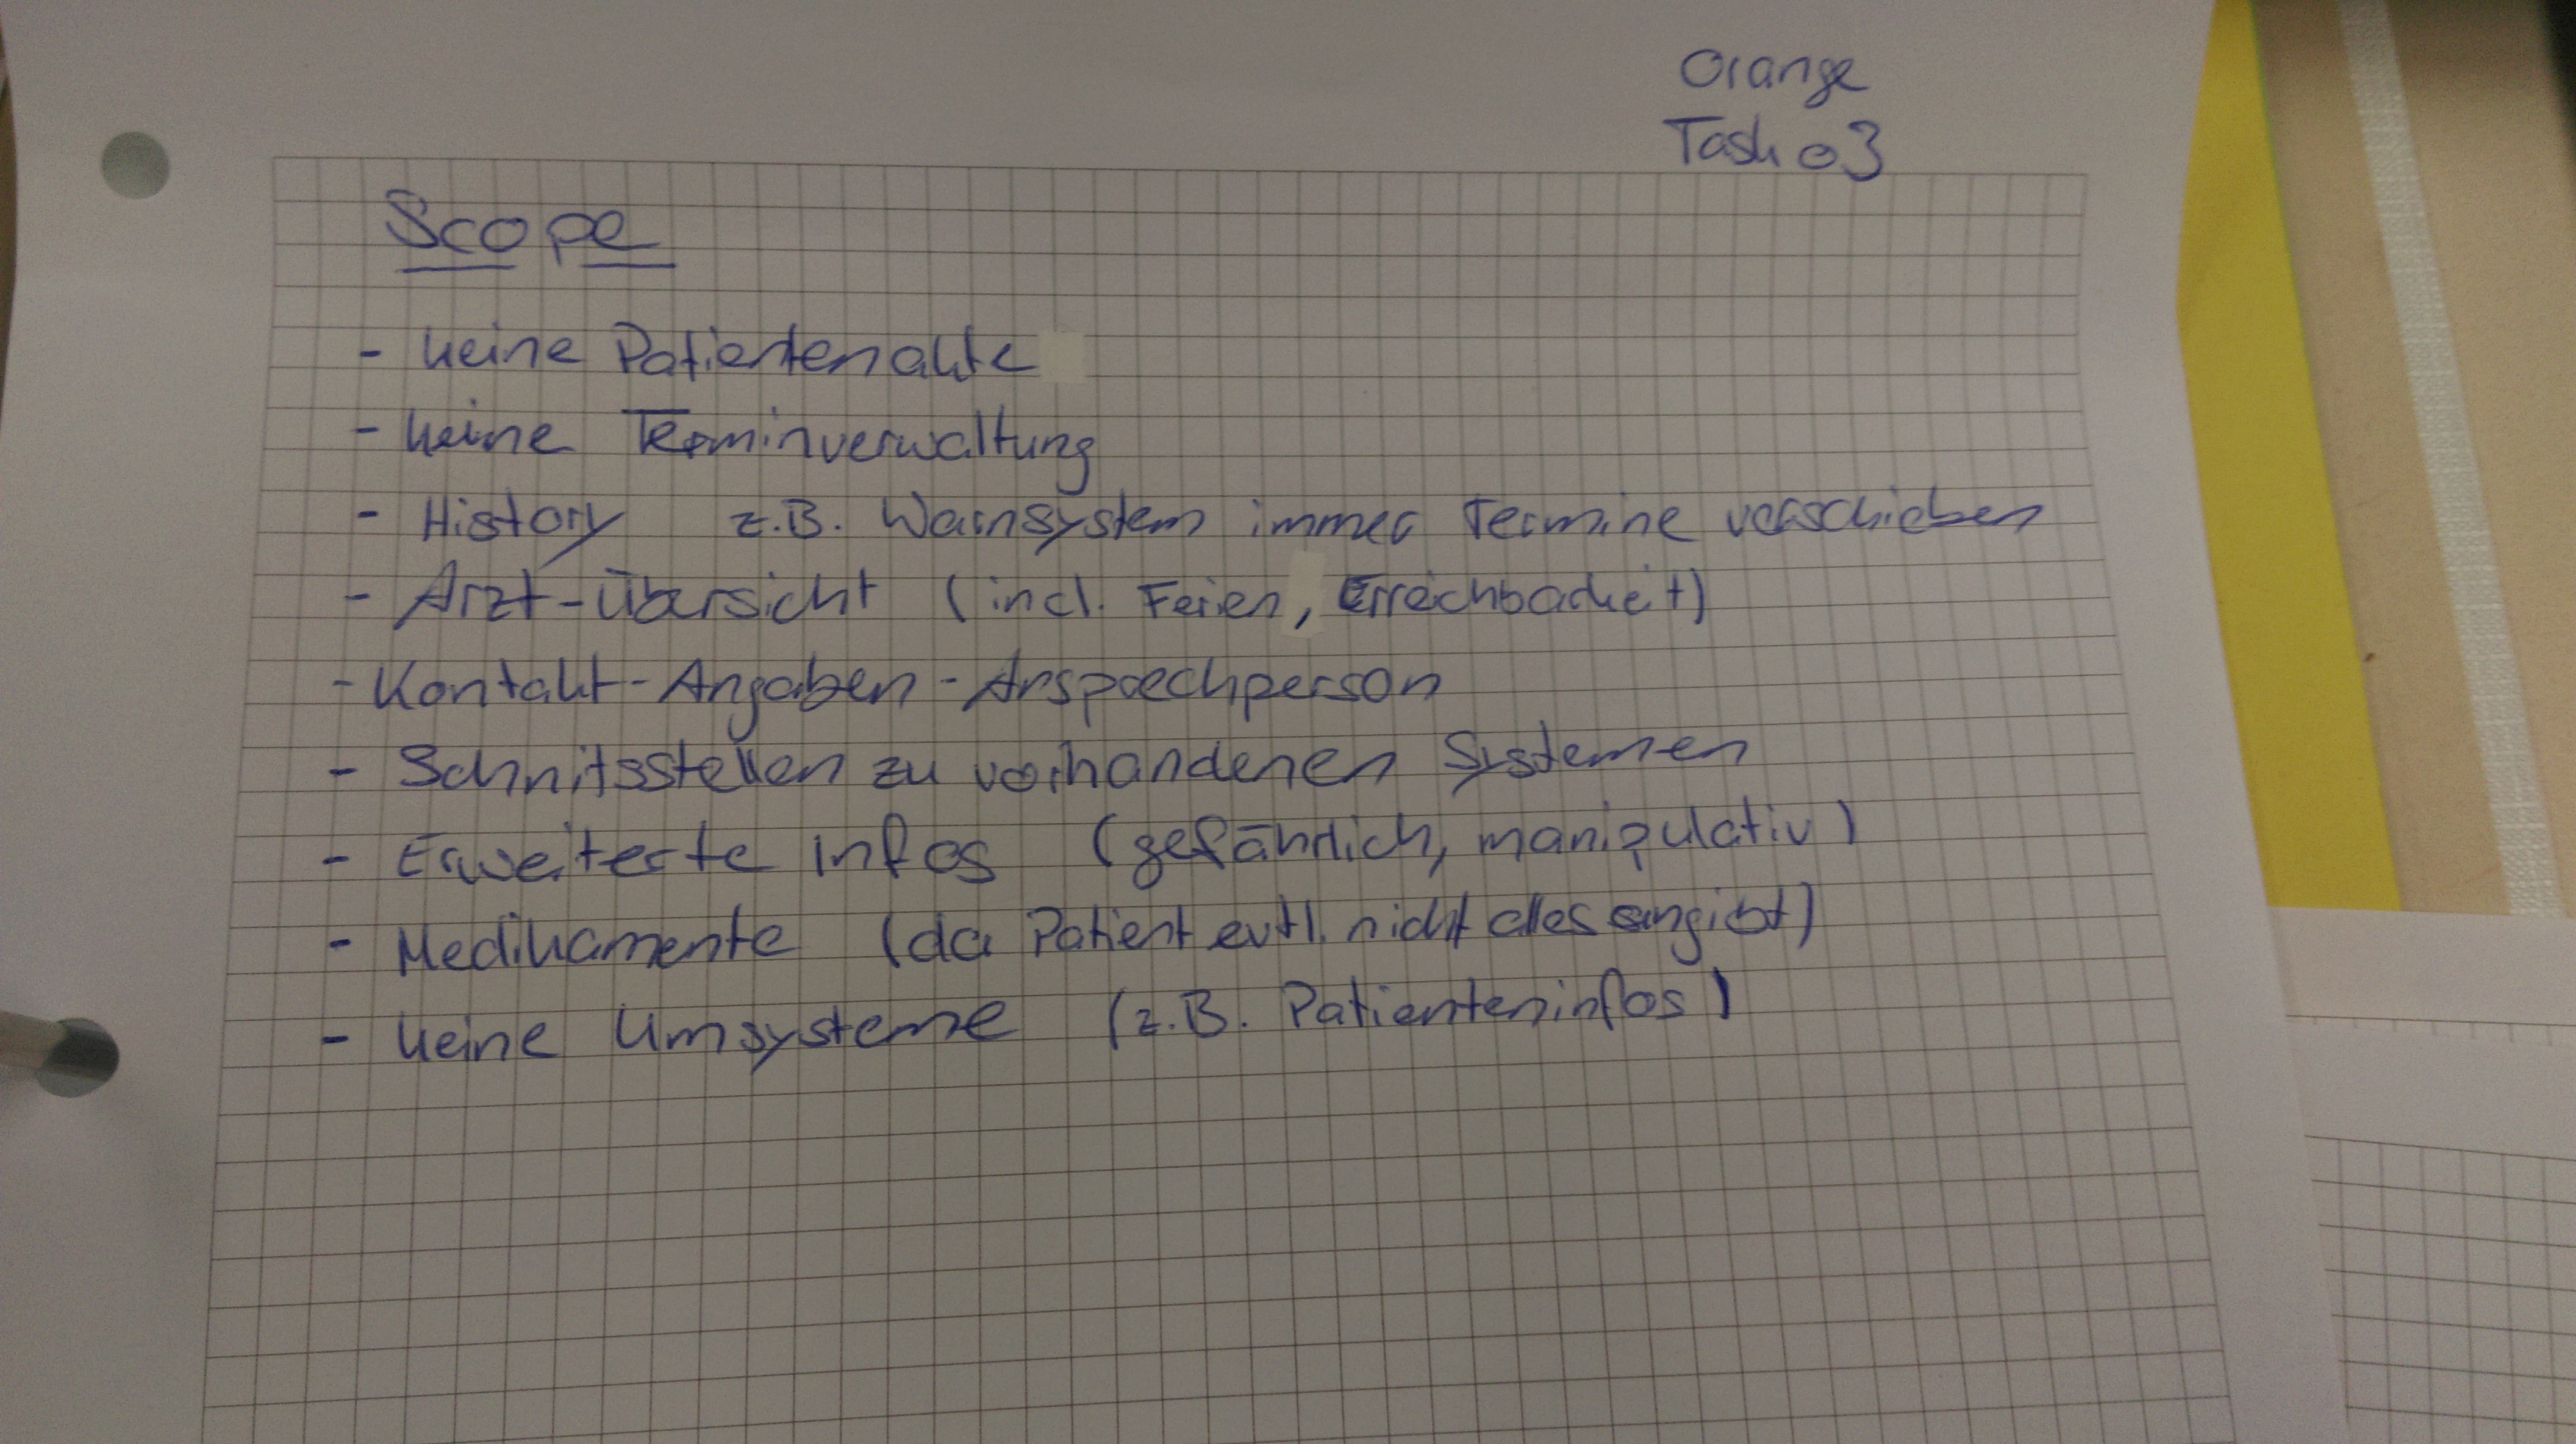 Orange
Task 03
Scope
- keine Patientenakte
- keine Terminverwaltung
- History z.B. Warnsystem immer Termine verschieben
- Arzt-Übersicht (incl. Ferien, Erreichbarkeit)
- Kontakt-Angaben-Ansprechperson
- Schnitsstellen zu vorhandenen Systemen
- Erweiterte Infos (gefährlich, manipulativ)
- Medikamente (da Patient evtl. nicht alles angibt)
- keine Umsysteme (z.B. Patienteninfos)